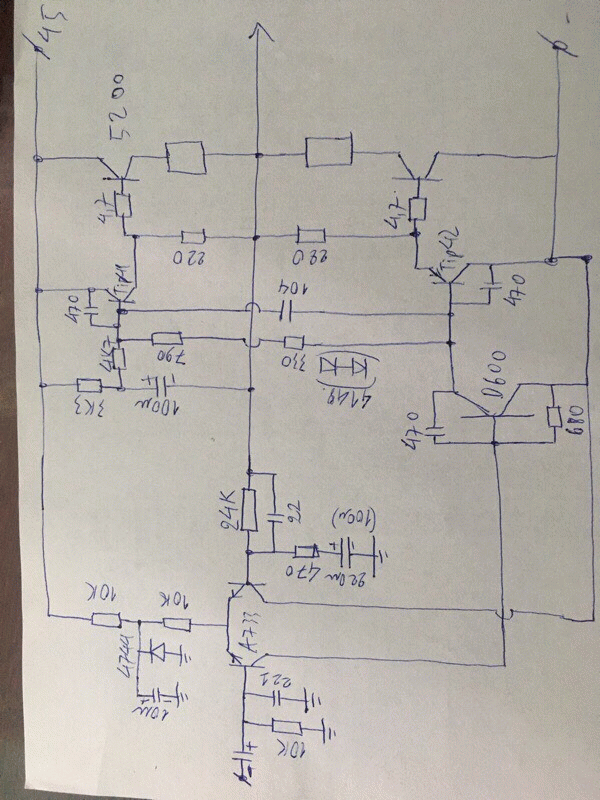 45
5200
4,7
4,7.
220
220
Tip41
Tip42
470
470
104
4K7
790
330
4148
3K3
100µ
+
D600
470
680
24K
22
470
220µ
(100µ)
+
10K
10K
4744
10µ
A733
221
10K
+
-